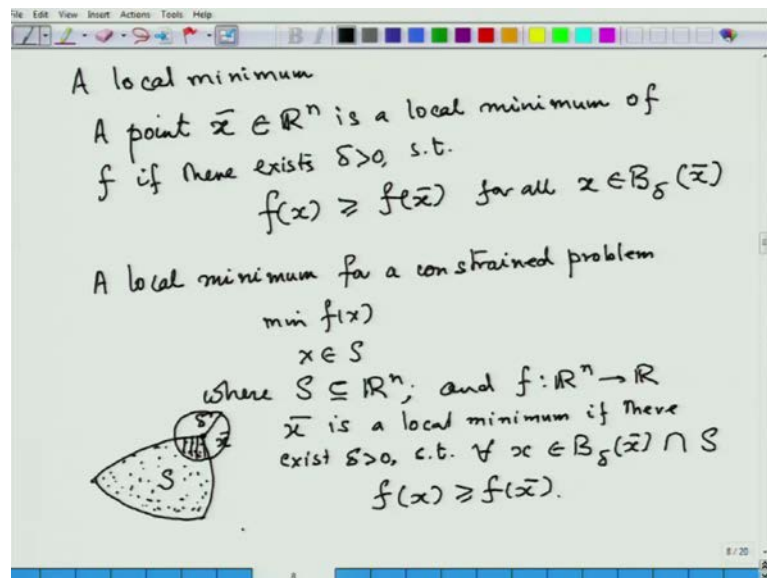 File Edit View Insert Actions Tools Help
A local minimum
A point x̄ ∈ ℝⁿ is a local minimum of
f if there exists δ>0, s.t.
f(x) ≥ f(x̄) for all x ∈ B_δ(x̄)
A local minimum for a constrained problem
min f(x)
x ∈ S
where S ⊆ ℝⁿ; and f : ℝⁿ → ℝ
x̄ is a local minimum if there
exist δ>0, s.t. ∀ x ∈ B_δ(x̄) ∩ S
f(x) ≥ f(x̄).
δ
x̄
S
8 / 20